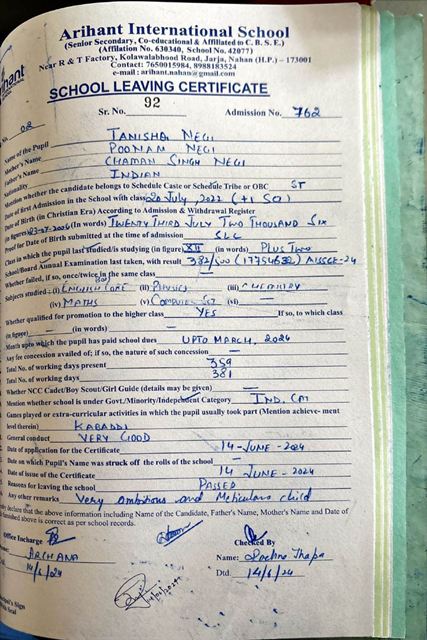 Arihant International School
(Senior Secondary, Co-educational & Affiliated to C. B. S. E.)
(Affiliation No. 630340, School No. 42077)
Near R & T Factory, Kolawalabhood Road, Jarja, Nahan (H.P.) – 173001
Contact: 7650015984, 8988183524
e-mail : arihant.nahan@gmail.com
SCHOOL LEAVING CERTIFICATE
Sr. No. 92 Admission No. 762
No. 02
Name of the Pupil TANISHQ NEGI
Mother's Name POONAM NEGI
Father's Name CHAMAN SINGH NEGI
Nationality INDIAN
Mention whether the candidate belongs to Schedule Caste or Schedule Tribe or OBC ST
Date of first Admission in the School with class 20 July, 2022 (+1 Sci)
Date of Birth (in Christian Era) According to Admission & Withdrawal Register
(in figures) 23-07-2006 (in words) TWENTY THIRD JULY TWO THOUSAND SIX
Proof for Date of Birth submitted at the time of admission SLC
Class in which the pupil last studied/is studying (in figure) XII (in words) PLUS TWO
School/Board Annual Examination last taken, with result 382/500 (17754632) AISSCE-24
Whether failed, if so, once/twice in the same class —
Subjects studied : (i) ENGLISH CORE (ii) PHYSICS (iii) CHEMISTRY
(iv) MATHS (v) COMPUTER SCI (vi) —
Whether qualified for promotion to the higher class YES If so, to which class
(in figure) — (in words) —
Month upto which the pupil has paid school dues UPTO MARCH, 2024
Any fee concession availed of; if so, the nature of such concession —
Total No. of working days present 359
Total No. of working days 381
Whether NCC Cadet/Boy Scout/Girl Guide (details may be given) —
Mention whether school is under Govt./Minority/Independent Category IND. CAT
Games played or extra-curricular activities in which the pupil usually took part (Mention achieve- ment
level therein) KABADDI
General conduct VERY GOOD
Date of application for the Certificate 14-JUNE-2024
Date on which Pupil's Name was struck off the rolls of the school —
Date of issue of the Certificate 14 JUNE-2024
Reasons for leaving the school PASSED
Any other remarks Very ambitious and Meticulous child
declare that the above information including Name of the Candidate, Father's Name, Mother's Name and Date of
furnished above is correct as per school records.
Office Incharge Checked By
ARCHANA Name:
14/6/24 Dtd. 14/6/24